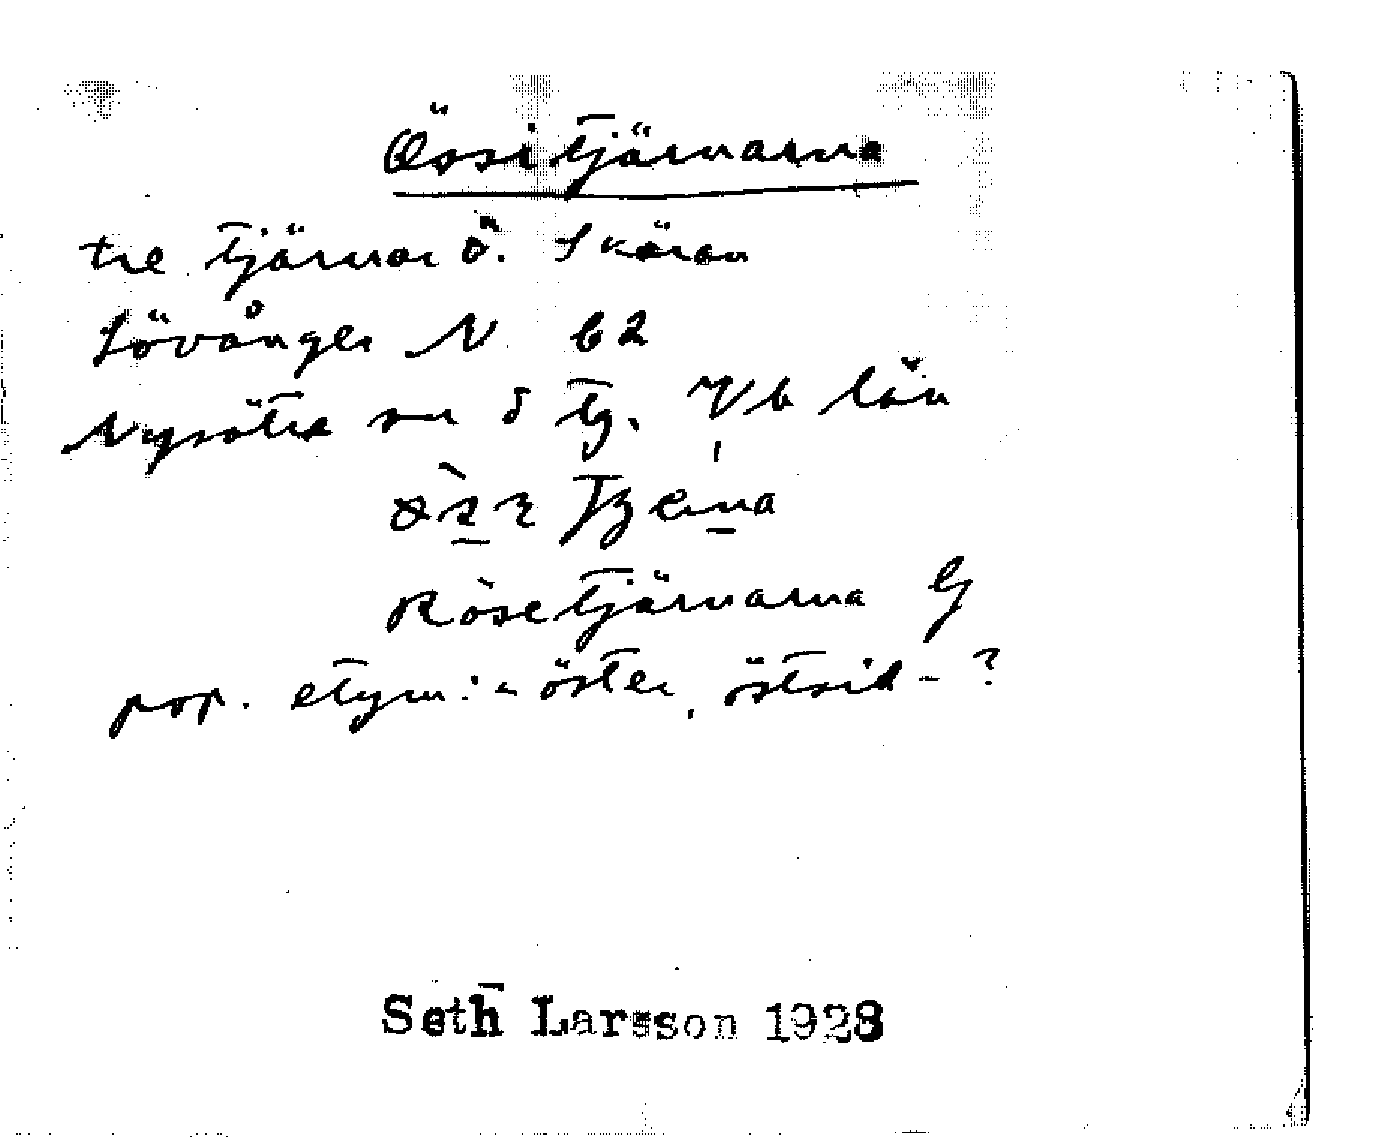 Össitjärnarna
tre tjärnar ö. Skäran
Lövånger N b2
Nysätra sn o tg. Vb län
Rösetjärnarna G
pop. etym: = öster, östsid-?
Seth Larsson 1928